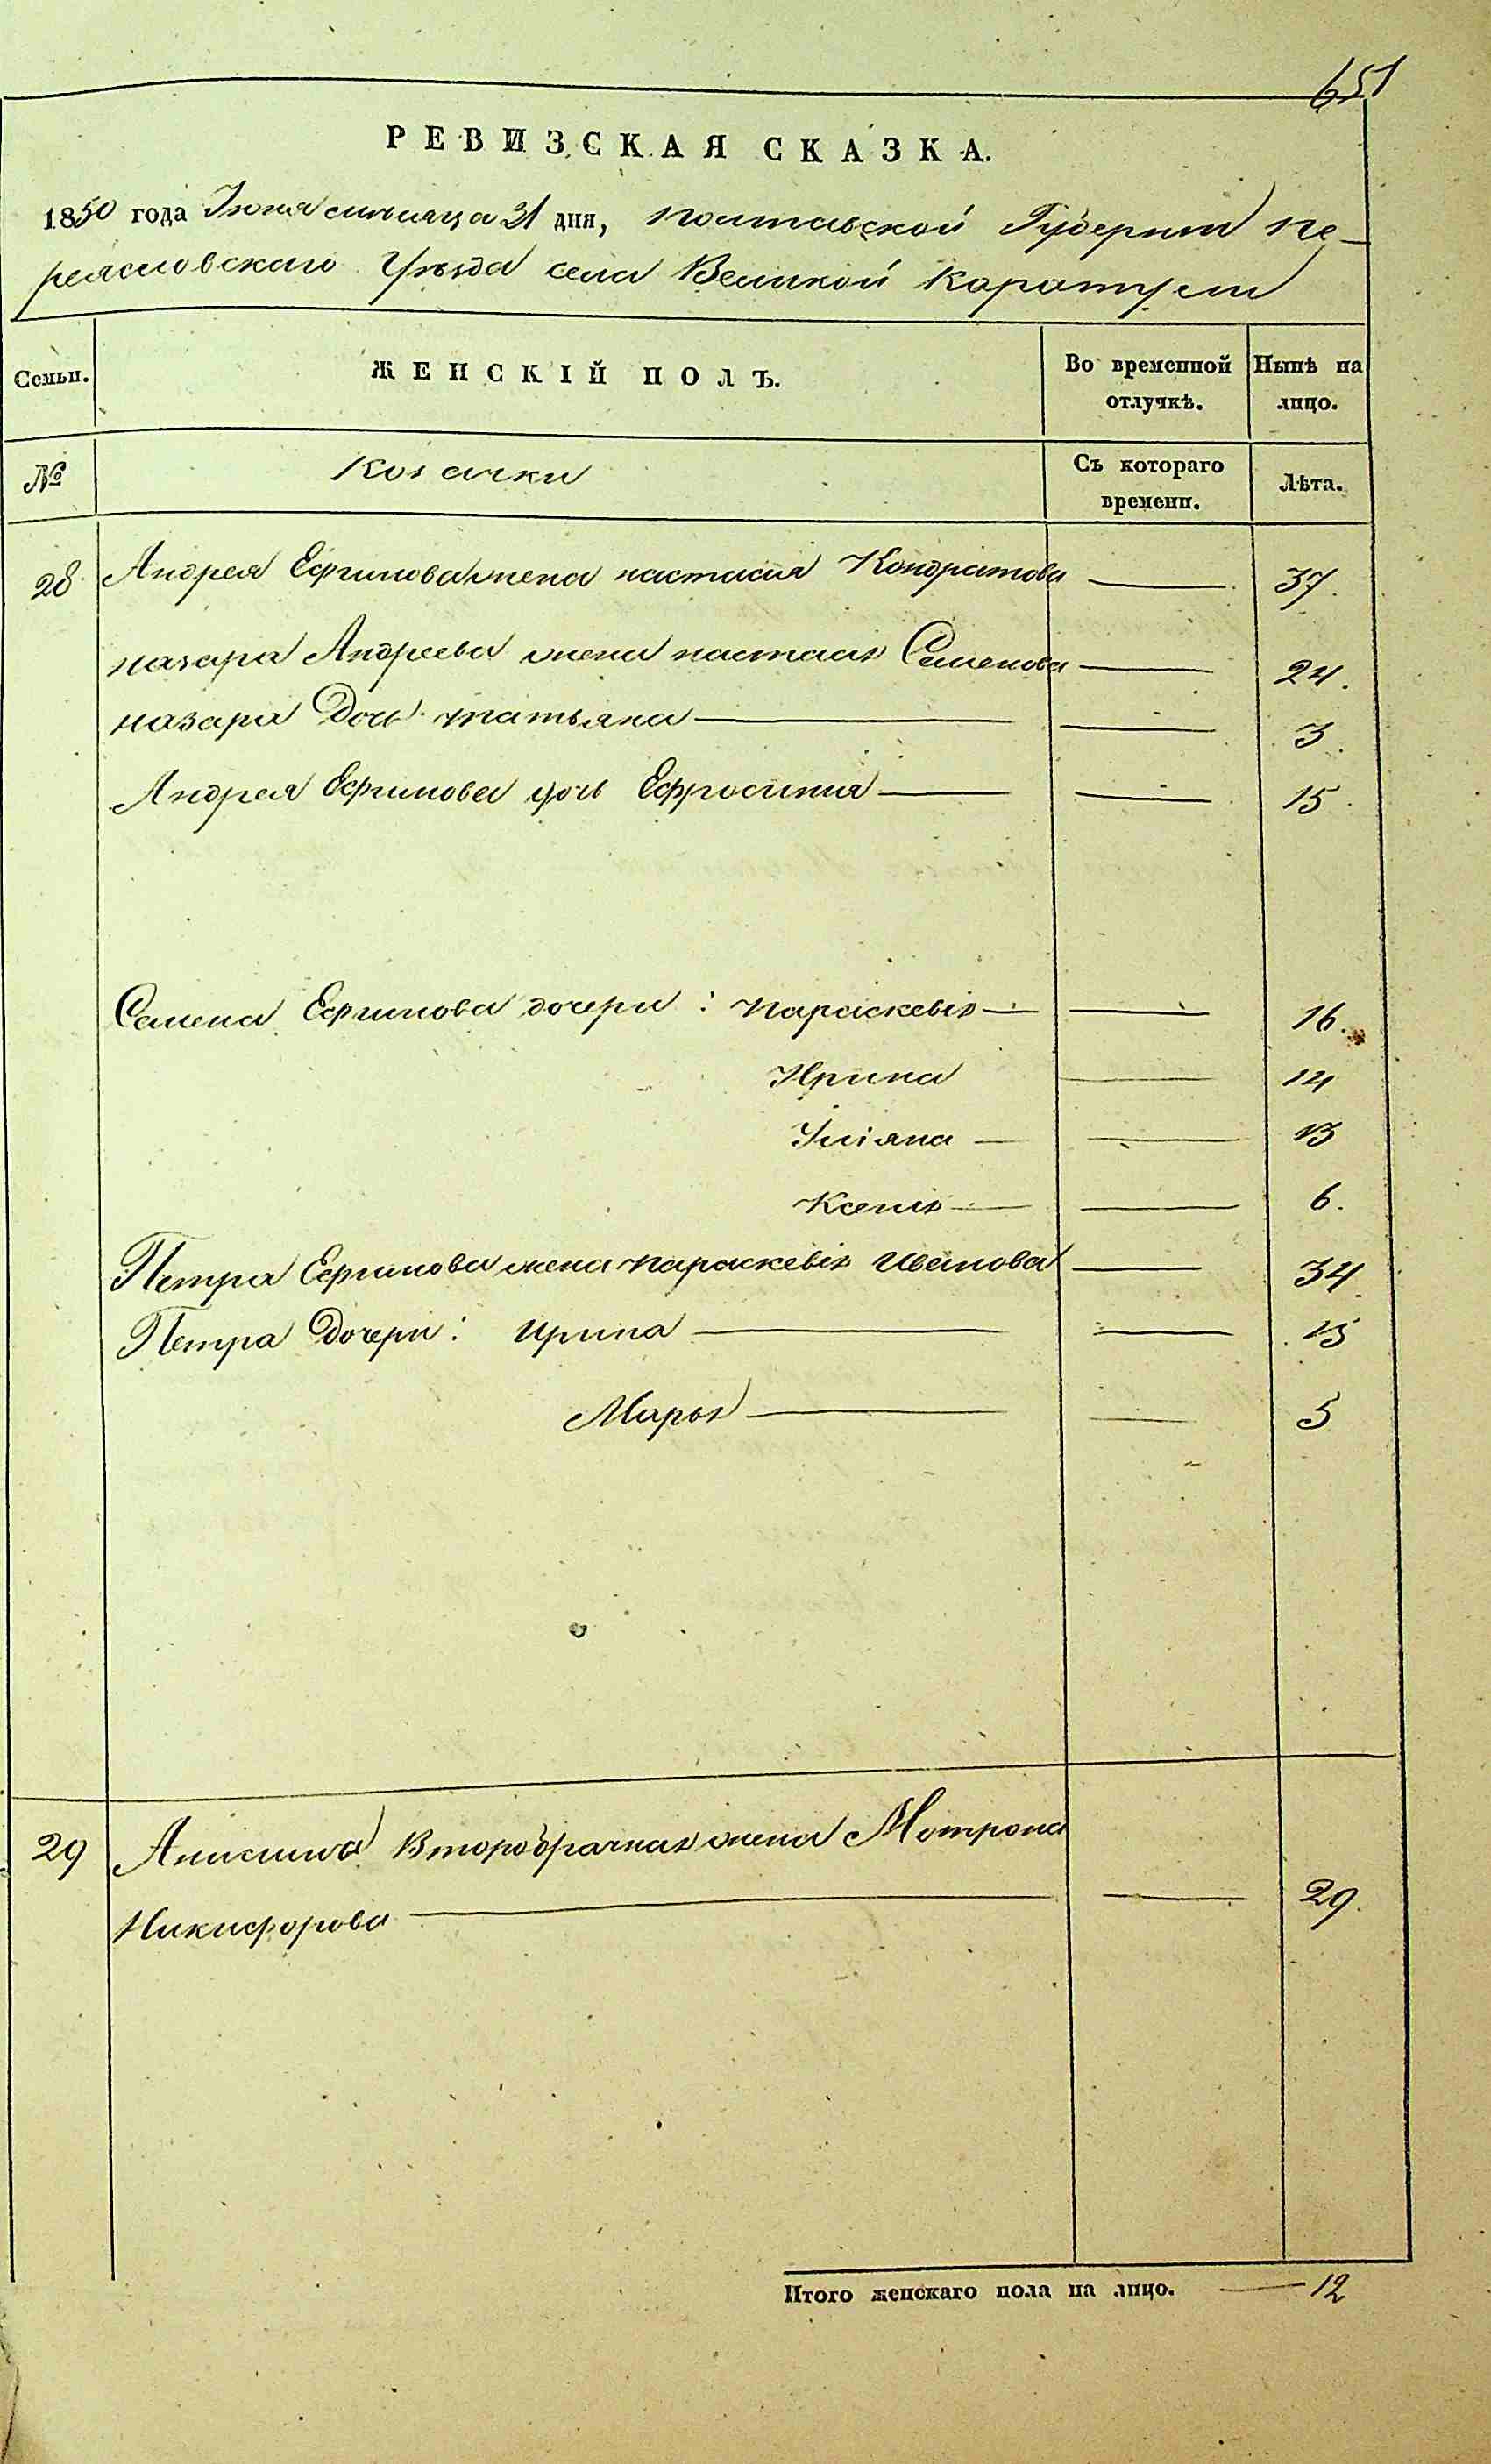 651
РЕВИЗСКАЯ СКАЗКА.
1850 года Июня мѣсяца 31 дня, Полтавской Губерніи Пе-
реяславскаго Уѣзда села Великой Каратули
Семьи. ЖЕНСКІЙ ПОЛЪ. Во временной отлучкѣ. Нынѣ на лицо.
№ Козачки Съ котораго времени. Лѣта.
28 Андрея Ефимова жена настасия Кондратова — 37.
назара Андреева жена настасія Семенова — 24.
назара Дочь татьяна — — 3.
Андрея Ефимова дочь Ефросиния — — 15.
Семена Ефимова дочери: Параскевія — — 16.
Ирина — 14
Уліяна — — 13
Ксенія — — 6.
Петра Ефимова жена параскевія Иванова — 34.
Петра Дочери: Ирина — — 15
Марья — — 5
29 Анисима Второбрачная жена Мотрона
Никифорова — — 29.
Итого женскаго пола на лицо. — 12